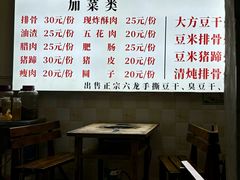 加菜类
排骨 30元/份 现炸酥肉 25元/份
油渣 25元/份 五花肉 20元/份
腊肉 25元/份 肥肠 25元/份
猪蹄 30元/份 猪皮 20元/份
瘦肉 20元/份 圆子 20元/份
大方豆干
豆米排骨
豆米猪蹄
清炖排骨
出售正宗六龙手撕豆干、臭豆